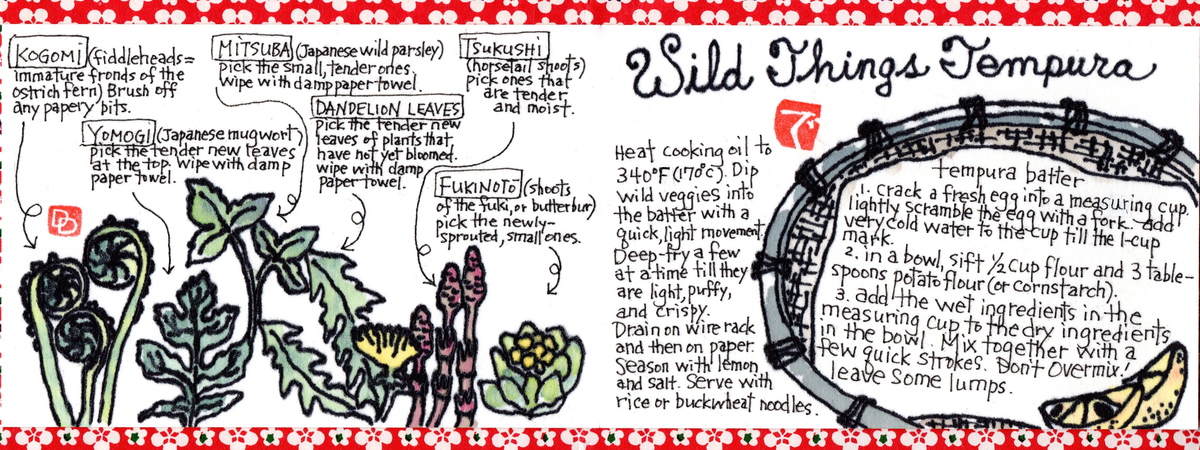 KOGOMI (fiddleheads=
immature fronds of the
ostrich fern) Brush off
any papery bits.
YOMOGI (Japanese mugwort)
pick the tender new leaves
at the top. wipe with damp
paper towel.
MITSUBA (Japanese wild parsley)
pick the small, tender ones.
wipe with damp paper towel.
DANDELION LEAVES
Pick the tender new
leaves of plants that
have not yet bloomed.
wipe with damp
paper towel.
TSUKUSHI
(horsetail shoots)
pick ones that
are tender
and moist.
FUKINOTO (shoots
of the fuki, or butterbur)
pick the newly-
sprouted, small ones.
DD
Wild Things Tempura
で
Heat cooking oil to
340°F (170°C). Dip
wild veggies into
the batter with a
quick, light movement.
Deep-fry a few
at a time till they
are light, puffy,
and crispy.
Drain on wire rack
and then on paper.
Season with lemon
and salt. Serve with
rice or buckwheat noodles.
tempura batter
1. crack a fresh egg into a measuring cup.
lightly scramble the egg with a fork. add
very cold water to the cup till the 1-cup
mark.
2. in a bowl, sift 1/2 cup flour and 3 table-
spoons potato flour (or cornstarch).
3. add the wet ingredients in the
measuring cup to the dry ingredients
in the bowl. Mix together with a
few quick strokes. Don't overmix!
leave some lumps.